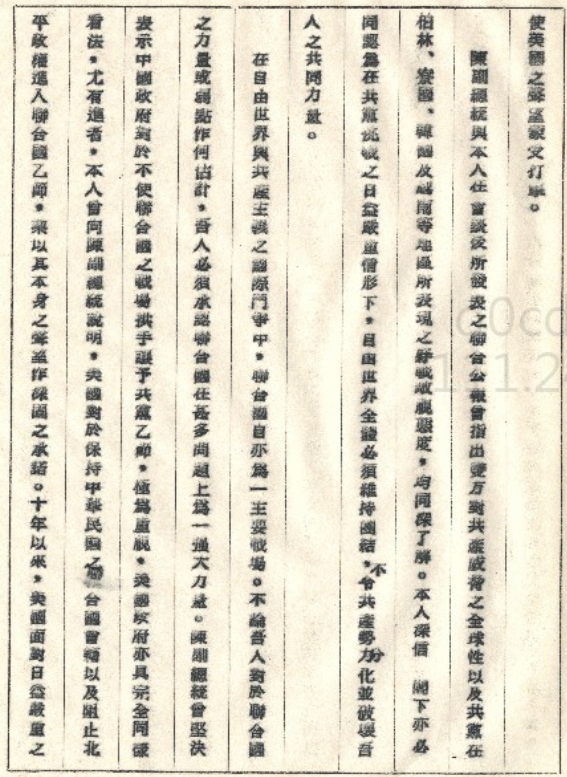 使英國之聲望蒙受打擊。
陳副總統與本人在會談後所發表之聯合公報曾指出雙方對共產威脅之全球性以及共黨在
柏林、寮國、韓國及越南等地區所表現之好戰敵視態度,均同深了解。本人深信 閣下亦必
同認為在共黨挑戰之日益嚴重情形下,自由世界全體必須維持團結,不令共產勢力分化並破壞吾
人之共同力量。
在自由世界與共產主義之國際鬥爭中,聯合國自亦為一主要戰場。不論吾人對於聯合國
之力量或弱點作何估計,吾人必須承認聯合國在甚多問題上為一強大力量。陳副總統曾堅決
表示中國政府對於不使聯合國之戰場拱手讓予共黨乙節,極為重視,美國政府亦具完全同樣
看法,尤有進者,本人曾向陳副總統說明,美國對於保持中華民國之聯合國會籍以及阻止北
平政權進入聯合國乙節,業以其本身之聲望作深固之承諾。十年以來,美國面對日益嚴重之